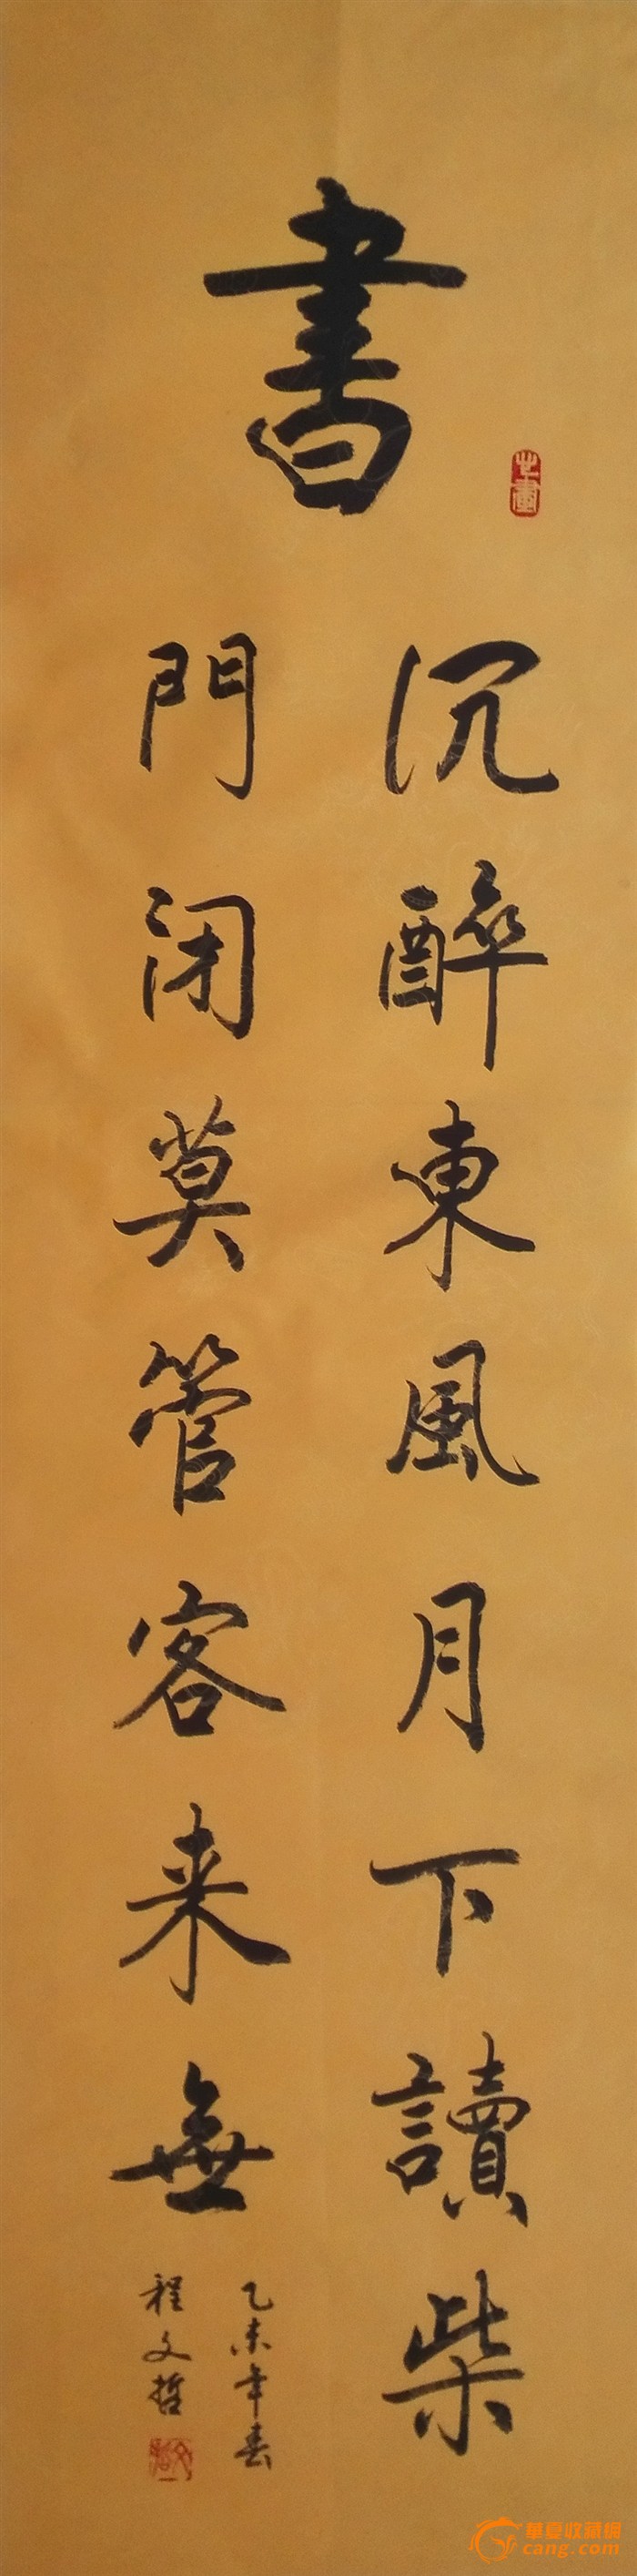 書
沉醉東風月下讀柴
門闭莫管客来無
乙未年春
程文哲
華夏收藏網
cang.com